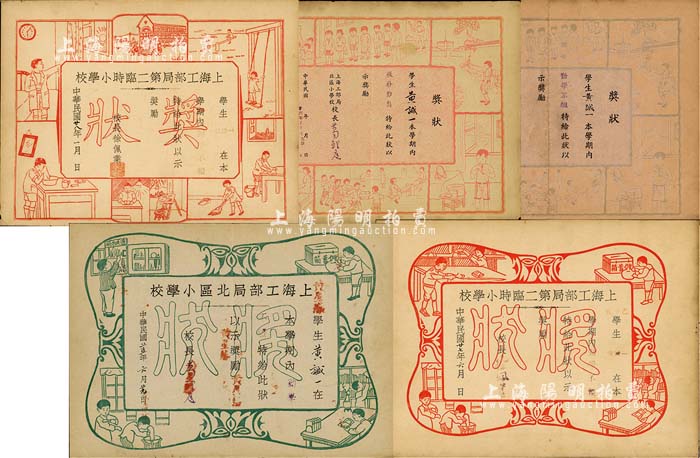 上海工部局第二臨時小學校
學生 在本
學期內
特給此狀以示
獎勵
校長
中華民國廿八年一月 日
獎狀
獎狀
學生黃誠一本學期內
特給此狀以
示獎勵
上海工部局
北區小學校 校長
中華民國 年 月 日
獎狀
學生黃誠一本學期內
特給此狀以
示獎勵
上海陽明拍賣
www.yangmingauction.com
上海工部局北區小學校
學生黃誠一在
本學期內
特給此狀
以示獎勵
校長
中華民國廿五年六月 日
獎狀
上海工部局第二臨時小學校
學生 在本
學期內
特給此狀以示
獎勵
校長
中華民國廿八年六月 日
獎狀